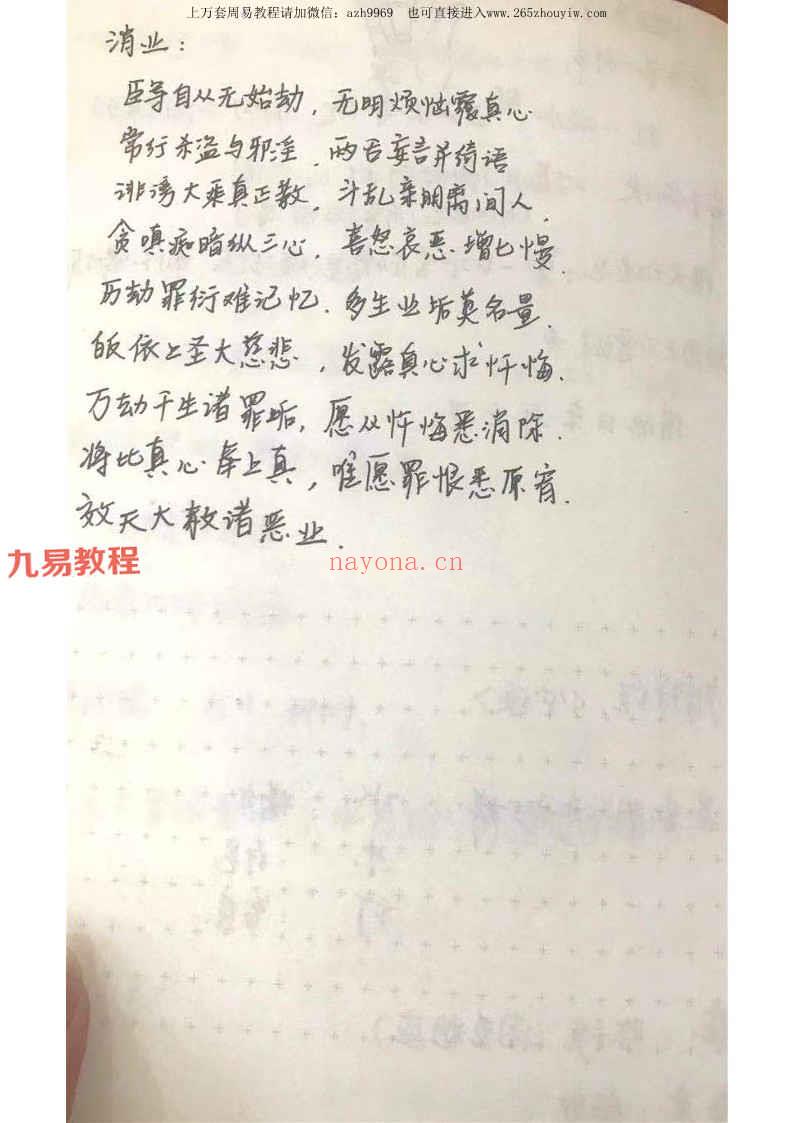 上万套周易教程请加微信：azh9969 也可直接进入www.265zhouyiw.com
消业：
臣等自从无始劫，无明烦恼覆真心
常行杀盗与邪淫．两舌妄言并绮语
诽谤大乘真正教，斗乱亲朋离间人．
贪嗔痴暗纵三心，喜怒哀恶增七慢．
历劫罪衍难记忆．多生业垢莫名量．
皈依上圣大慈悲，发露真心求忏悔．
万劫千生诸罪垢，愿从忏悔悉消除．
将比真心奉上真，唯愿罪恨悉原宥．
效天大赦诸恶业．
九易教程
nayona.cn